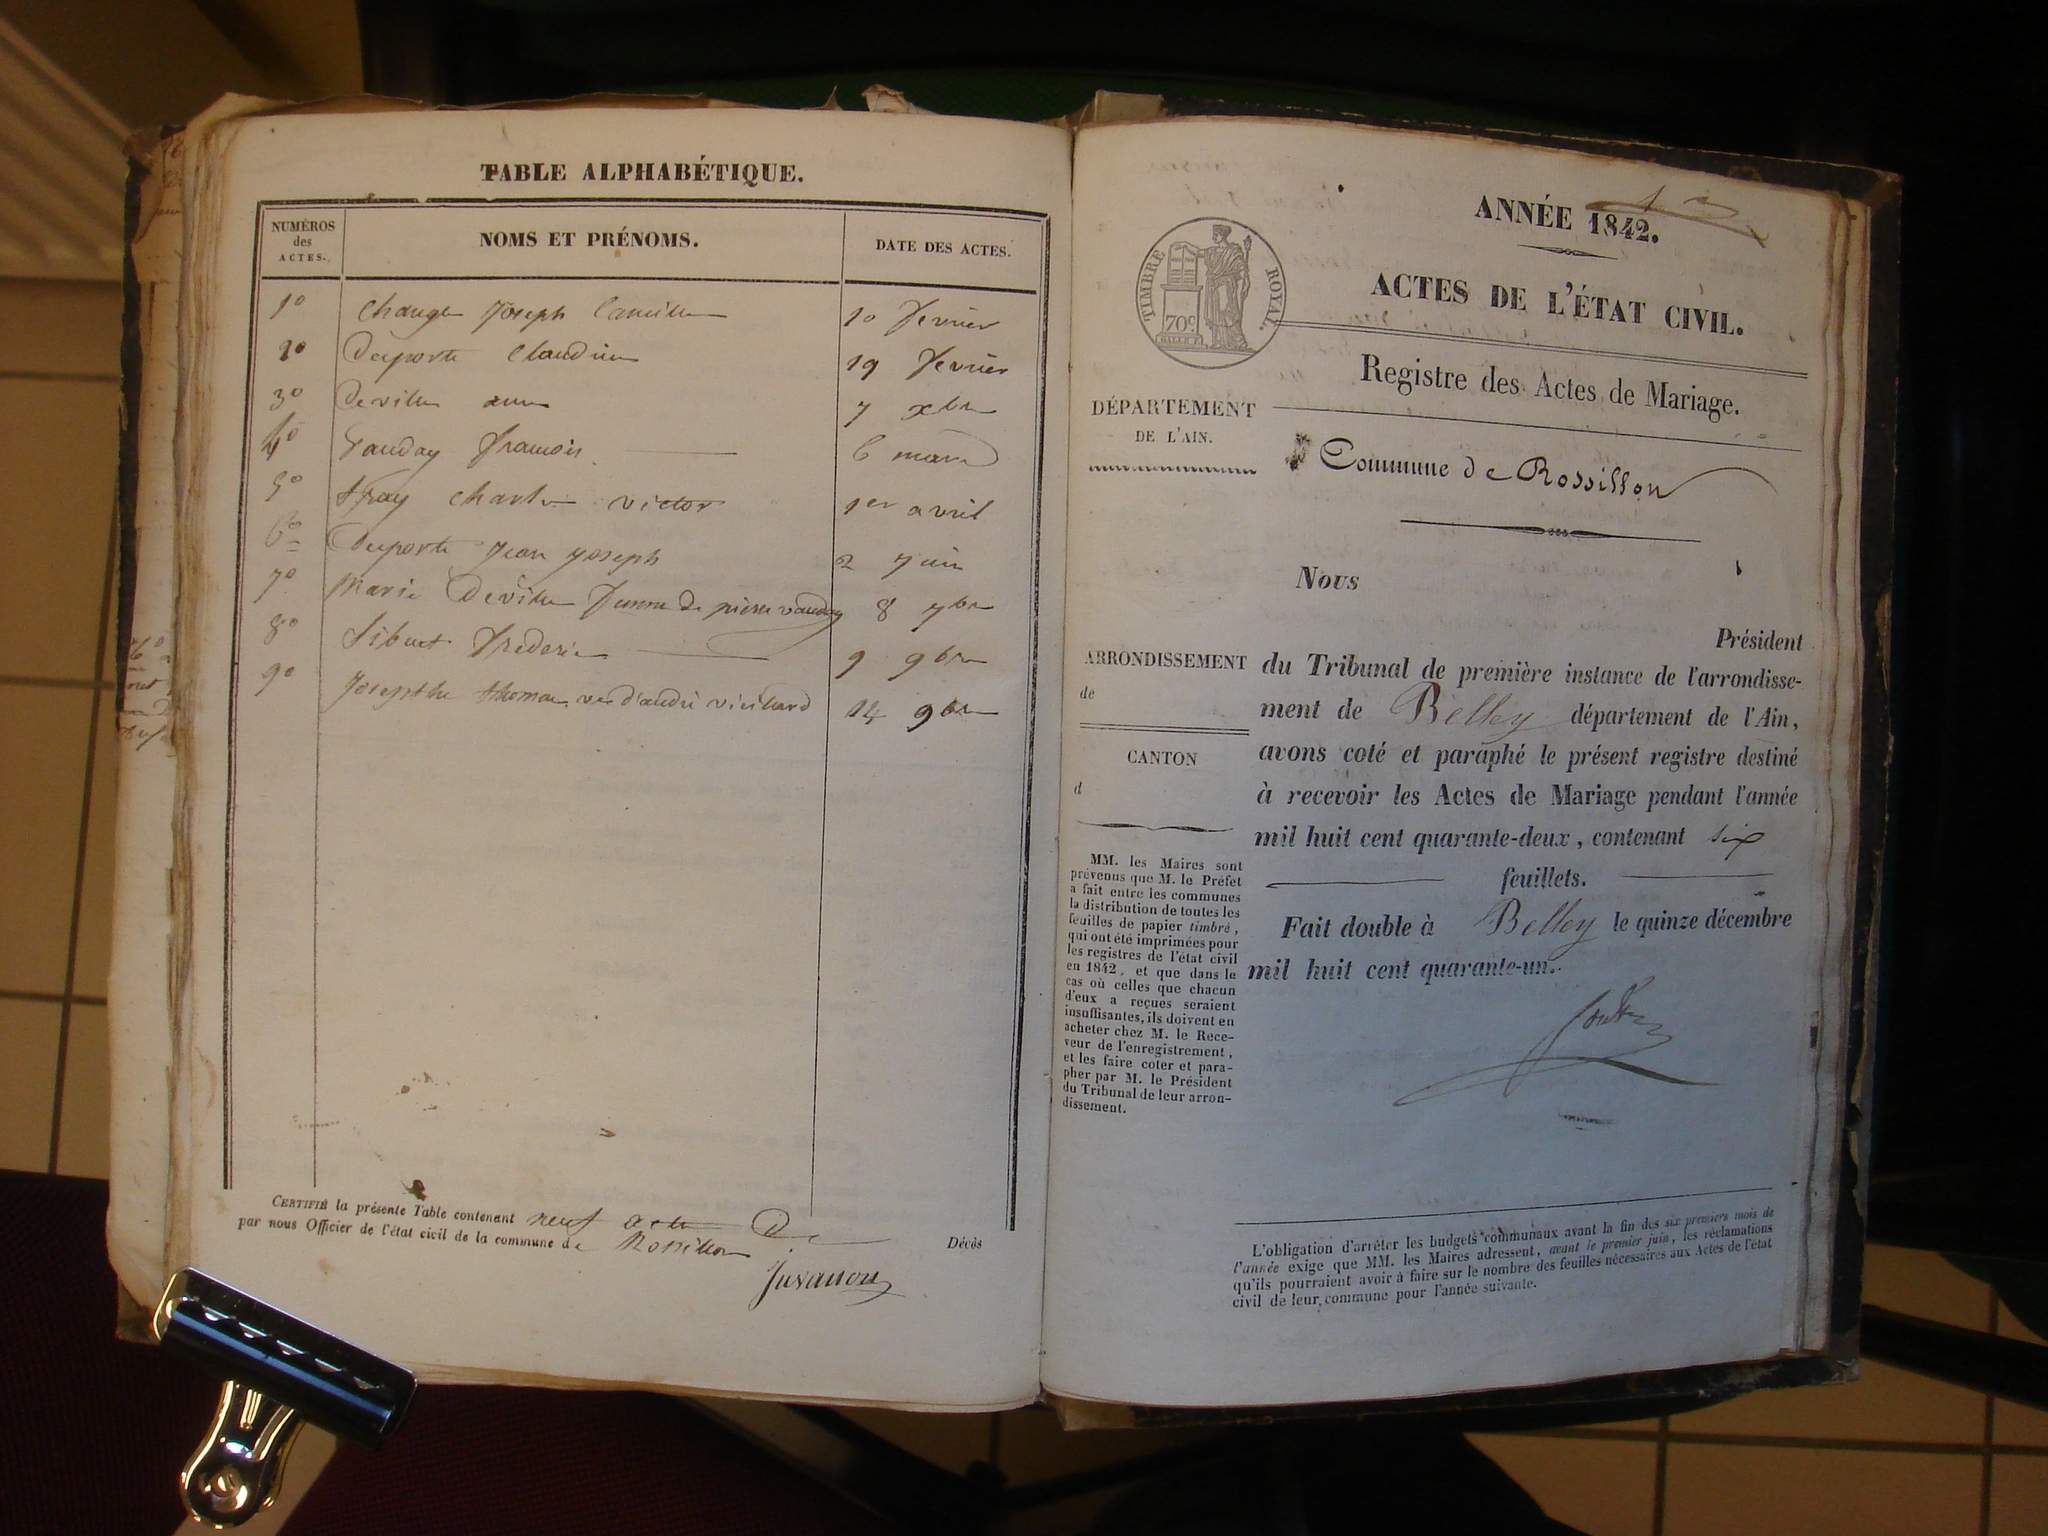 TABLE ALPHABÉTIQUE.
NUMÉROS
des
ACTES.
NOMS ET PRÉNOMS.
DATE DES ACTES.
1o Joseph 10 fevrier
2o Claudine 19 fevrier
3o Deville 7 xbre
4o francois 6 mars
5o Charles victor 1er avril
6o Jean Joseph 2 juin
7o Marie Deville femme de pierre vauday 8 7bre
8o Sibuet frederic 9 9bre
9o Josephte thomas d'andré 14 9bre
CERTIFIÉ la présente Table contenant neuf actes de Décès
par nous Officier de l'état civil de la commune de Rossillon
Juvanon
ANNÉE 1842.
TIMBRE ROYAL.
70c
ACTES DE L'ÉTAT CIVIL.
Registre des Actes de Mariage.
DÉPARTEMENT
DE L'AIN.
Commune de Rossillon
ARRONDISSEMENT
de
CANTON
d
MM. les Maires sont
prévenus que M. le Préfet
a fait entre les communes
la distribution de toutes les
feuilles de papier timbré,
qui ont été imprimées pour
les registres de l'état civil
en 1842, et que dans le
cas où celles que chacun
d'eux a reçues seraient
insuffisantes, ils doivent en
acheter chez M. le Rece-
veur de l'enregistrement,
et les faire coter et para-
pher par M. le Président
du Tribunal de leur arron-
dissement.
Nous
Président
du Tribunal de première instance de l'arrondisse-
ment de Belley département de l'Ain,
avons coté et paraphé le présent registre destiné
à recevoir les Actes de Mariage pendant l'année
mil huit cent quarante-deux, contenant six
feuillets.
Fait double à Belley le quinze décembre
mil huit cent quarante-un.
L'obligation d'arrêter les budgets communaux avant la fin des six premiers mois de
l'année exige que MM. les Maires adressent, avant le premier juin, les réclamations
qu'ils pourraient avoir à faire sur le nombre des feuilles nécessaires aux Actes de l'état
civil de leur commune pour l'année suivante.